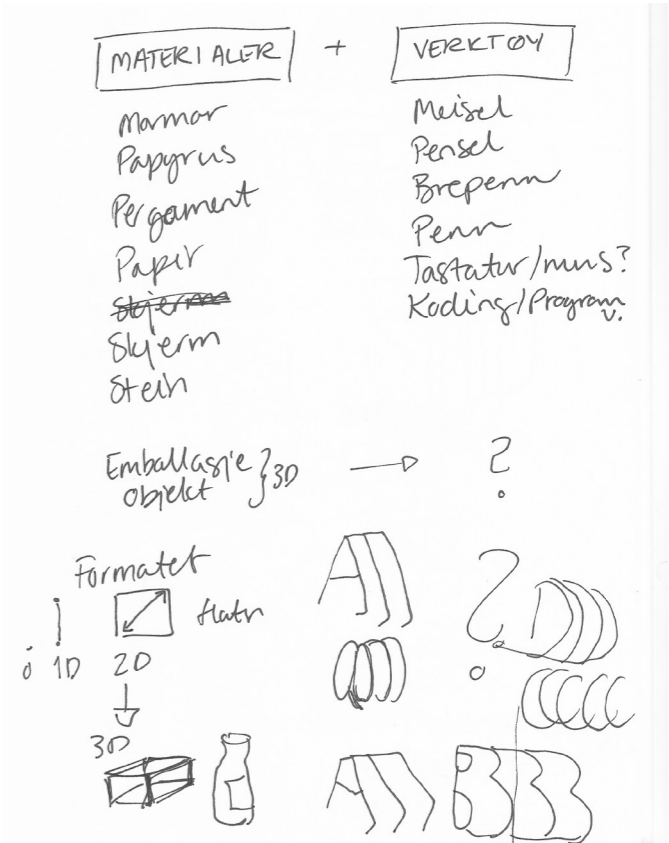 MATERIALER + VERKTØY
Marmor
Papyrus
Pergament
Papir
Skjerm
Skjerm
Stein
Meisel
Pensel
Brepenn
Penn
Tastatur/mus?
Koding/Program
v.
Emballasje } 3D → ?
objekt
Formatet
flatn
0 1D 2D
3D
A
?
D
O
C
A
B